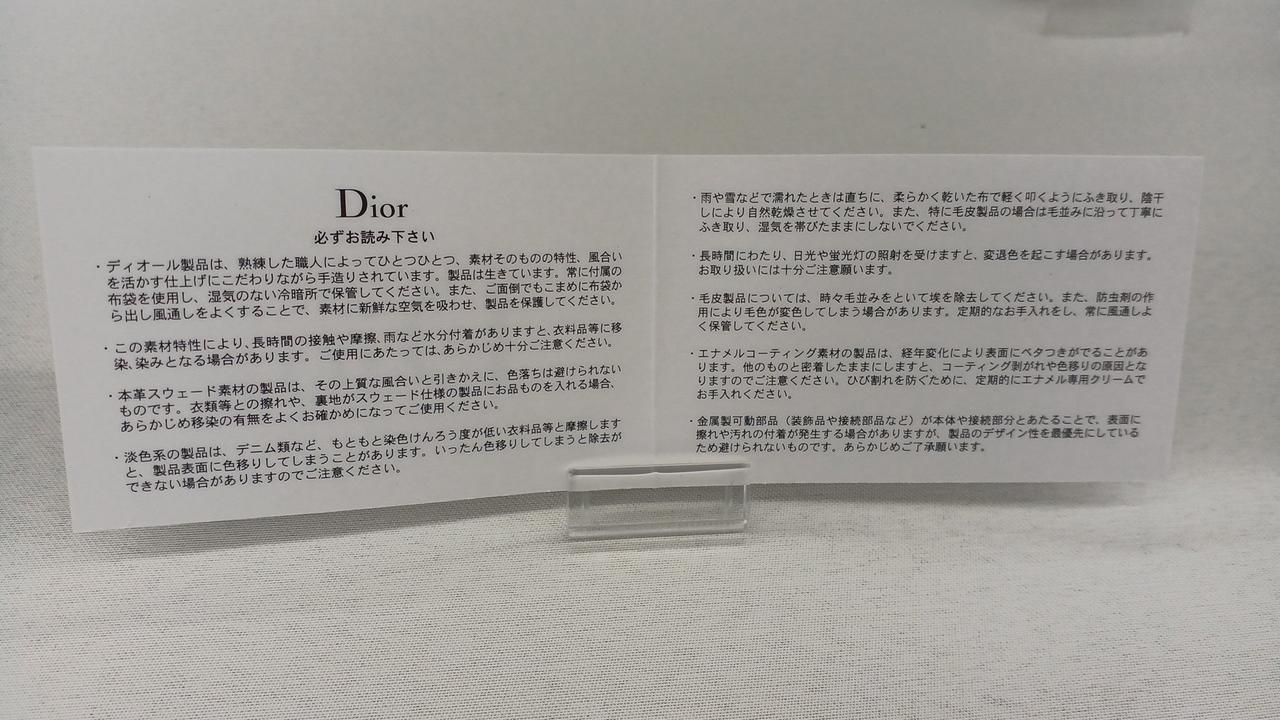 Dior
必ずお読み下さい
・ディオール製品は、熟練した職人によってひとつひとつ、素材そのものの特性、風合い
を活かす仕上げにこだわりながら手造りされています。製品は生きています。常に付属の
布袋を使用し、湿気のない冷暗所で保管してください。また、ご面倒でもこまめに布袋か
ら出し風通しをよくすることで、素材に新鮮な空気を吸わせ、製品を保護してください。
・この素材特性により、長時間の接触や摩擦、雨など水分付着がありますと、衣料品等に移
染、染みとなる場合があります。ご使用にあたっては、あらかじめ十分ご注意ください。
・本革スウェード素材の製品は、その上質な風合いと引きかえに、色落ちは避けられない
ものです。衣類等との擦れや、裏地がスウェード仕様の製品にお品ものを入れる場合、
あらかじめ移染の有無をよくお確かめになってご使用ください。
・淡色系の製品は、デニム類など、もともと染色けんろう度が低い衣料品等と摩擦します
と、製品表面に色移りしてしまうことがあります。いったん色移りしてしまうと除去が
できない場合がありますのでご注意ください。
・雨や雪などで濡れたときは直ちに、柔らかく乾いた布で軽く叩くようにふき取り、陰干
しにより自然乾燥させてください。また、特に毛皮製品の場合は毛並みに沿って丁寧に
ふき取り、湿気を帯びたままにしないでください。
・長時間にわたり、日光や蛍光灯の照射を受けますと、変退色を起こす場合があります。
お取り扱いには十分ご注意願います。
・毛皮製品については、時々毛並みをといて埃を除去してください。また、防虫剤の作
用により毛色が変色してしまう場合があります。定期的なお手入れをし、常に風通しよ
く保管してください。
・エナメルコーティング素材の製品は、経年変化により表面にベタつきがでることがあ
ります。他のものと密着したままにしますと、コーティング剥がれや色移りの原因とな
りますのでご注意ください。ひび割れを防ぐために、定期的にエナメル専用クリームで
お手入れください。
・金属製可動部品（装飾品や接続部品など）が本体や接続部分とあたることで、表面に
擦れや汚れの付着が発生する場合がありますが、製品のデザイン性を最優先にしている
ため避けられないものです。あらかじめご了承願います。